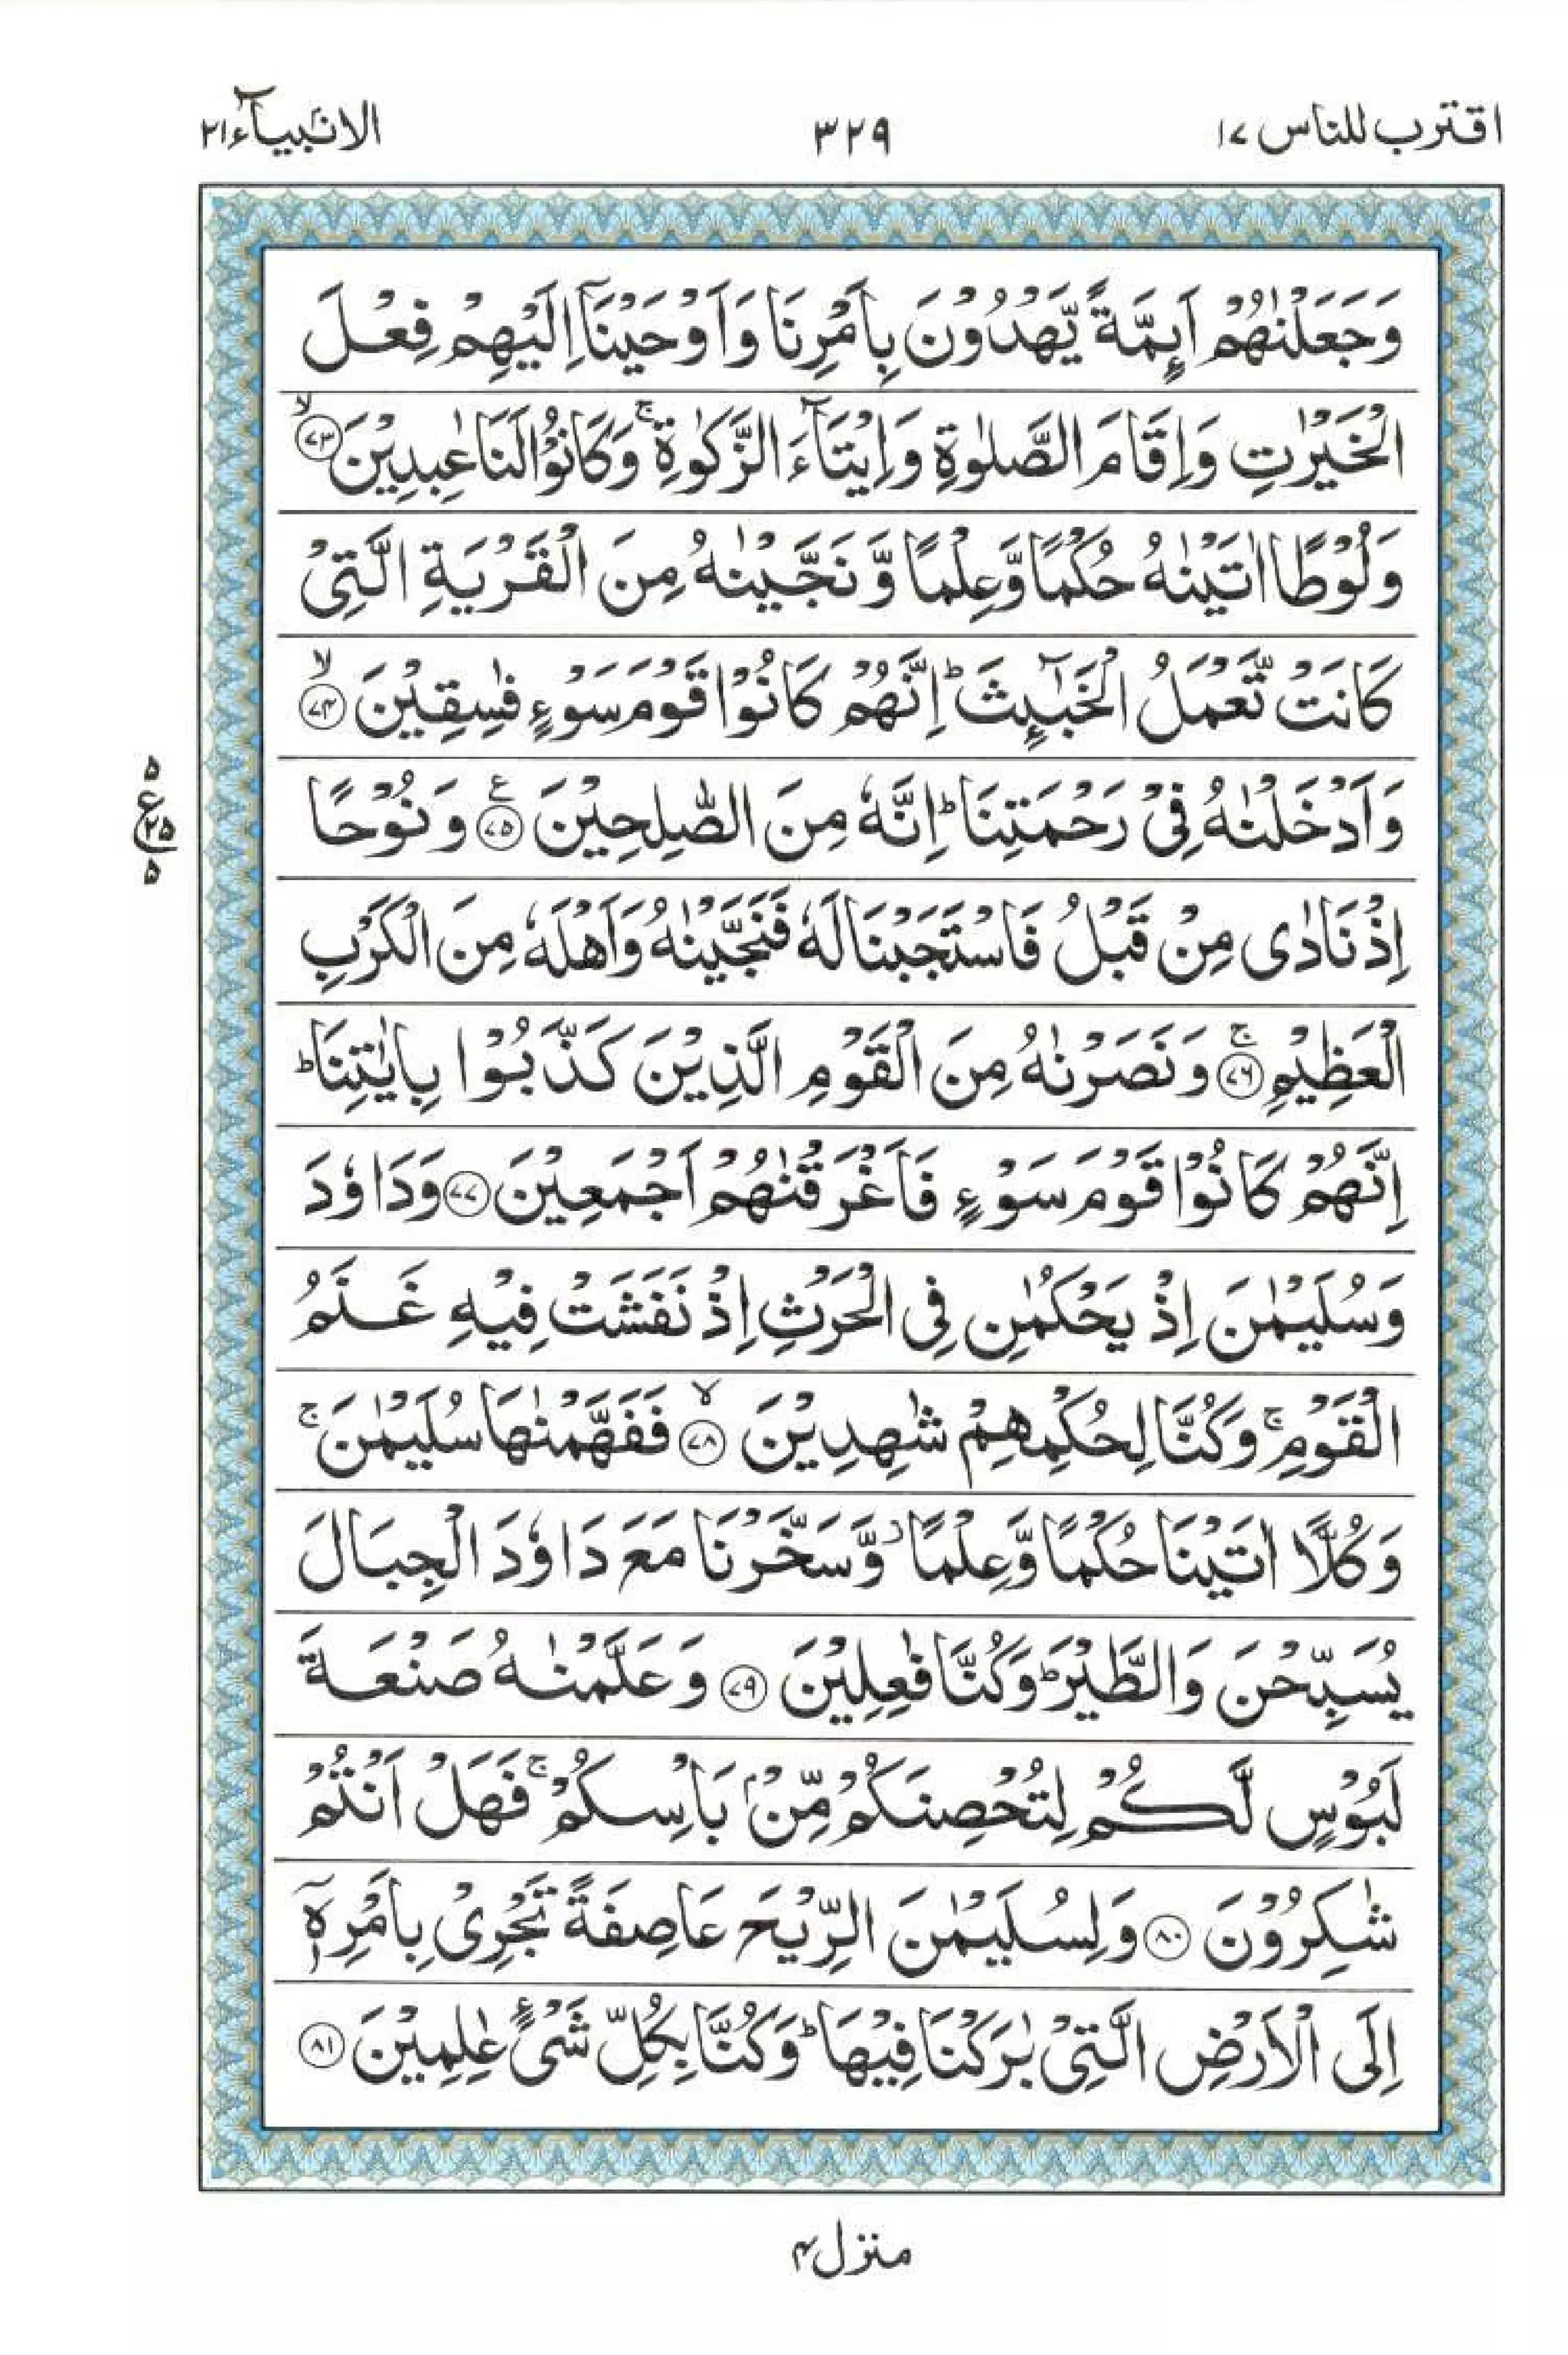 اقترب للناس ١٧
٣٢٩
الانبیآء ٢١
وَجَعَلْنٰهُمْ اَئِمَّةً یَّهْدُوْنَ بِاَمْرِنَا وَاَوْحَیْنَاۤ اِلَیْهِمْ فِعْلَ
الْخَیْرٰتِ وَاِقَامَ الصَّلٰوةِ وَاِیْتَآءَ الزَّكٰوةِ ۚ وَكَانُوْا لَنَا عٰبِدِیْنَ ﴿٧٣﴾ ۙ
وَلُوْطًا اٰتَیْنٰهُ حُكْمًا وَّعِلْمًا وَّنَجَّیْنٰهُ مِنَ الْقَرْیَةِ الَّتِیْ
كَانَتْ تَّعْمَلُ الْخَبٰٓئِثَ ؕ اِنَّهُمْ كَانُوْا قَوْمَ سَوْءٍ فٰسِقِیْنَ ﴿٧٤﴾ ۙ
وَاَدْخَلْنٰهُ فِیْ رَحْمَتِنَا ؕ اِنَّهٗ مِنَ الصّٰلِحِیْنَ ﴿٧٥﴾ ع وَنُوْحًا
اِذْ نَادٰی مِنْ قَبْلُ فَاسْتَجَبْنَا لَهٗ فَنَجَّیْنٰهُ وَاَهْلَهٗ مِنَ الْكَرْبِ
الْعَظِیْمِ ﴿٧٦﴾ ۚ وَنَصَرْنٰهُ مِنَ الْقَوْمِ الَّذِیْنَ كَذَّبُوْا بِاٰیٰتِنَا ؕ
اِنَّهُمْ كَانُوْا قَوْمَ سَوْءٍ فَاَغْرَقْنٰهُمْ اَجْمَعِیْنَ ﴿٧٧﴾ وَدَاوٗدَ
وَسُلَیْمٰنَ اِذْ یَحْكُمٰنِ فِی الْحَرْثِ اِذْ نَفَشَتْ فِیْهِ غَنَمُ
الْقَوْمِ ۚ وَكُنَّا لِحُكْمِهِمْ شٰهِدِیْنَ ﴿٧٨﴾ ۙ فَفَهَّمْنٰهَا سُلَیْمٰنَ ۚ
وَكُلًّا اٰتَیْنَا حُكْمًا وَّعِلْمًا ؗ وَّسَخَّرْنَا مَعَ دَاوٗدَ الْجِبَالَ
یُسَبِّحْنَ وَالطَّیْرَ ؕ وَكُنَّا فٰعِلِیْنَ ﴿٧٩﴾ وَعَلَّمْنٰهُ صَنْعَةَ
لَبُوْسٍ لَّكُمْ لِتُحْصِنَكُمْ مِّنْۢ بَاْسِكُمْ ۚ فَهَلْ اَنْتُمْ
شٰكِرُوْنَ ﴿٨٠﴾ وَلِسُلَیْمٰنَ الرِّیْحَ عَاصِفَةً تَجْرِیْ بِاَمْرِهٖۤ
اِلَی الْاَرْضِ الَّتِیْ بٰرَكْنَا فِیْهَا ؕ وَكُنَّا بِكُلِّ شَیْءٍ عٰلِمِیْنَ ﴿٨١﴾
٥
ع ٢٥
٥
منزل ٤